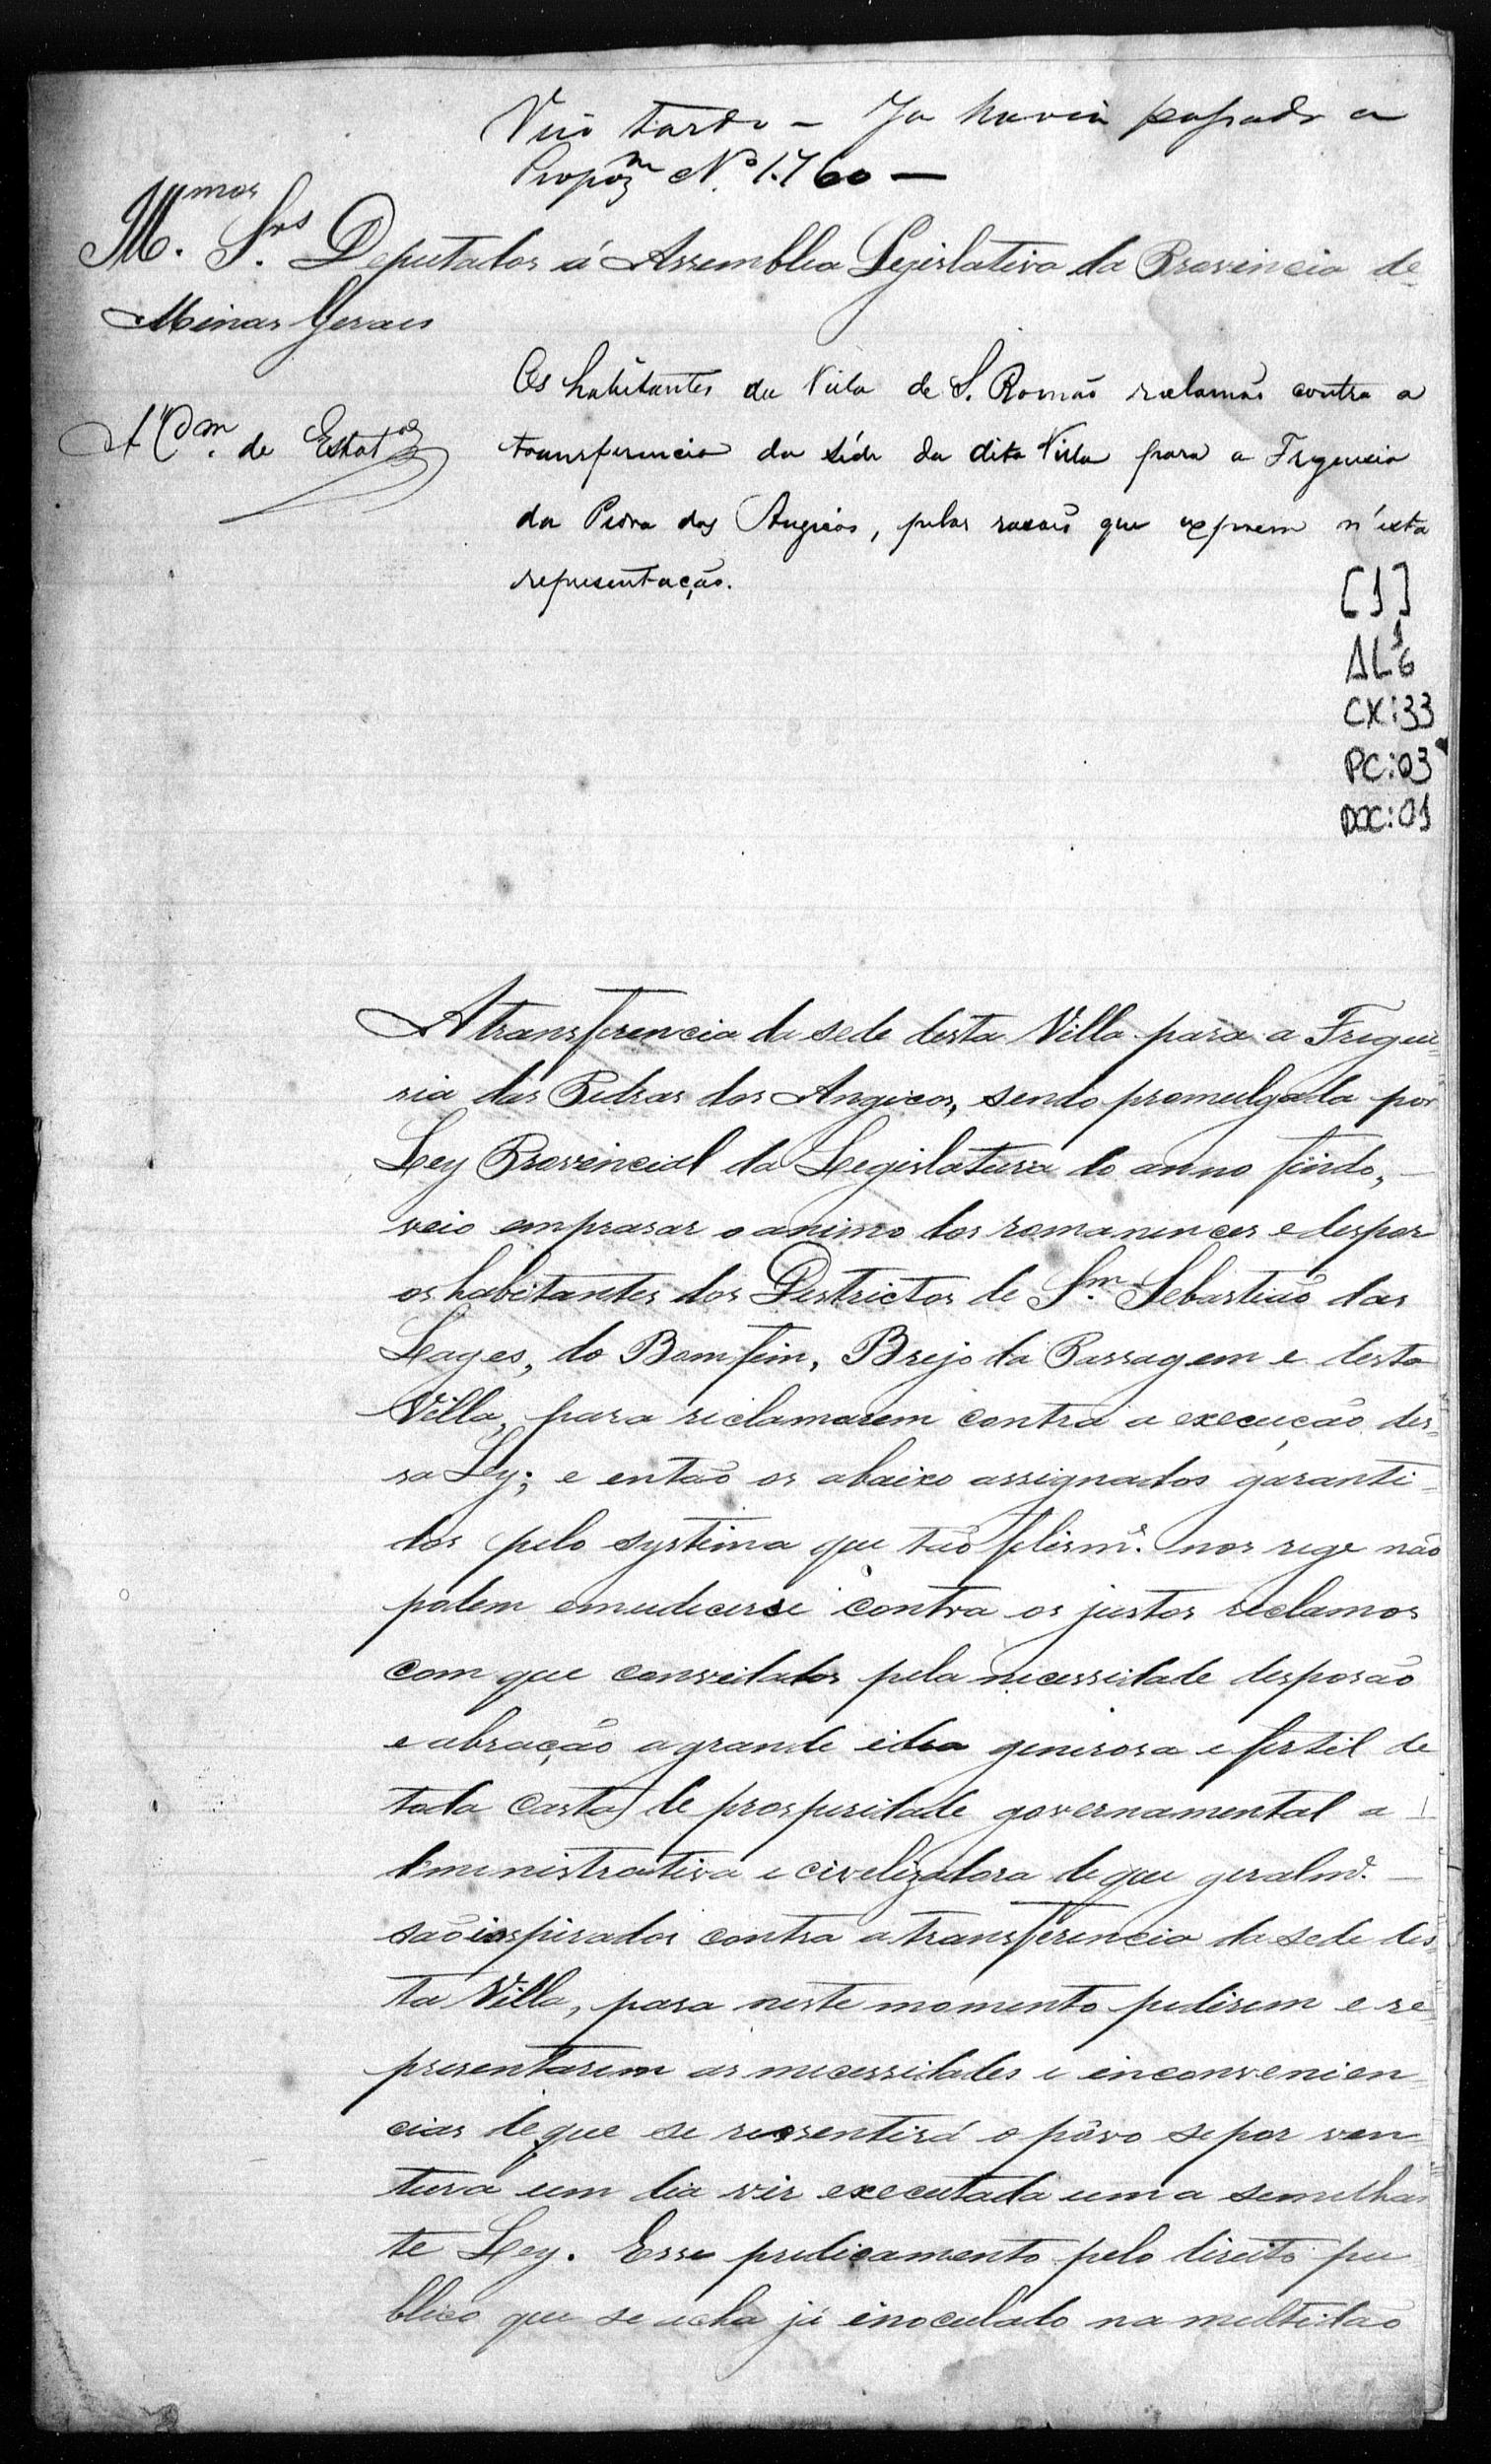 Veio tarde – Ja havia passado a
Propoz.m N.º 1.760 —
Ill.mos Srs. Deputados á Assemblea Legislativa da Provincia de
Minas Geraes
Os habitantes da Villa de S. Romão reclamão contra a
transferencia da séde da dita Villa para a Freguezia
da Pedra dos Angicos, pelas rasões que expoem n'esta
representação.
A' Com. de Estat.ca
[1]
AL 1 6
CX: 33
PC: 03
DOC: 01
A transferencia da sede desta Villa para a Fregue=
sia das Pedras dos Angicos, sendo promulgada por
Ley Provincial da Legislatura do anno findo,
veio emprasar o animo dos romanences e despor
os habitantes dos Destrictos de Sm. Sebastião das
Lages, do Bomfim, Brejo da Passagem e desta
Villa, para reclamarem contra a execução des=
sa Ley; e então os abaixo assignados garanti=
dos pelo systema que tão felism.e nos rege não
podem emudecerse contra os justos reclamos
com que convidados pela necessidade desposão
e abração a grande idea generosa e fertil de
toda casta de prosperidade governamental a
dministrativa e civelizadora de que geralm.e
são inspirados contra a transferencia da sede des=
ta Villa, para neste momento pedirem e re=
presentarem as necessidades e inconvenien=
cias de que se ressentirá o pôvo se por ven
tura um dia vir executada uma semelhan
te Ley. Esse predicamento pelo direito pu
blico que se acha já inoculado na multidão